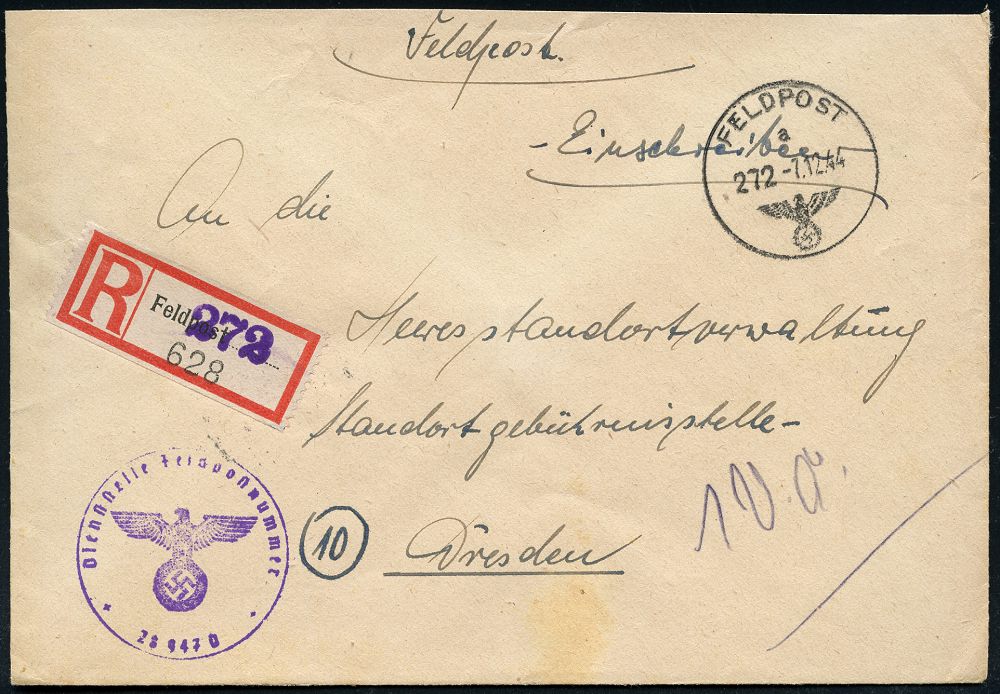 Feldpost.
- Einschreiben -
FELDPOST
a
272 -7.12.44
An die
R
Feldpost 272
628
Heeresstandortverwaltung
Standortgebührnisstelle-
(10) Dresden
Dienststelle Feldpostnummer